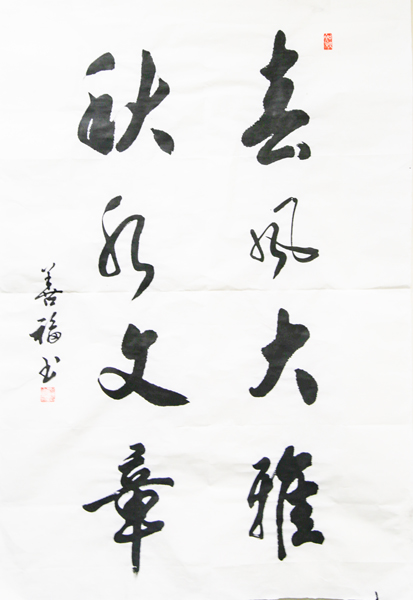 春风大雅
秋水文章
善福书